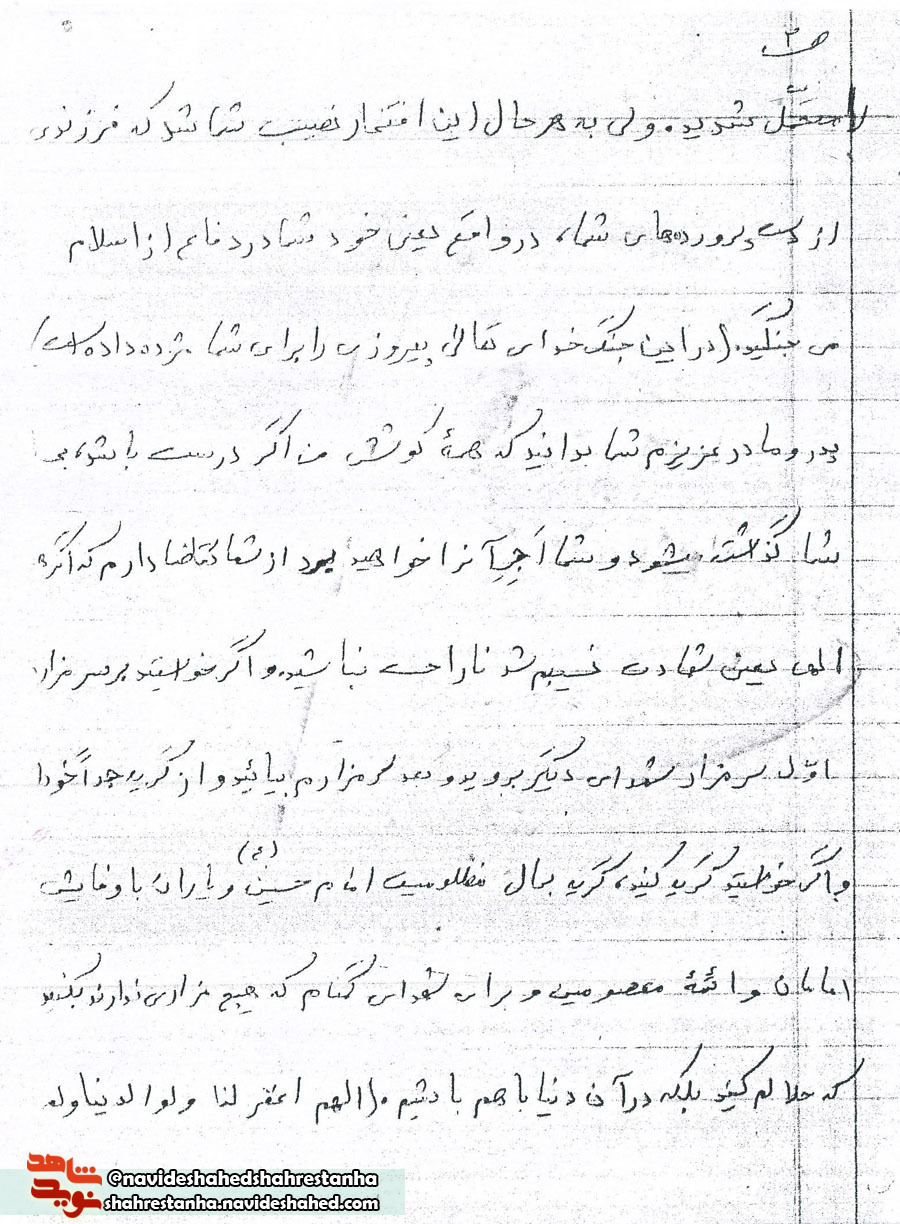 ص ۳
متحمّل شدید، ولی به هر حال این افتخار نصیب شما شد که فرزندی
از دست پرورده‌های شما، در واقع یعنی خود شما در دفاع از اسلام
می جنگید. (در این جنگ خدای تعالی پیروزی را برای شما مژده داده است)
پدر و مادر عزیزم شما بدانید که همهٔ کوشش من اگر درست باشد، به
شما گذاشته میشود و شما اَجرِ آنرا خواهید برد از شما تقاضا دارم که اگر
الهی یعنی شهادت نسیبم شد ناراحت نباشید. و اگر خواستید بر سر مزار
اوّل سر مزار شهدای دیگر بروید و بعد سر مزارم بیائید و از گریه جداً خودا
و اگر خواستید گریه کنید، گریه بحال مظلومیت امام حسین (ع) و یاران باوفایش
امامان و ائمّهٔ معصومین و برای شهدای گمنام که هیچ مزاری ندارند بکنید
که حلالم کنید بلکه در آن دنیا با هم باشیم. (الهم اغفر لنا ولوالدینا وله
شاهد
نوید
©navideshahedshahrestanha
shahrestanha.navideshahed.com